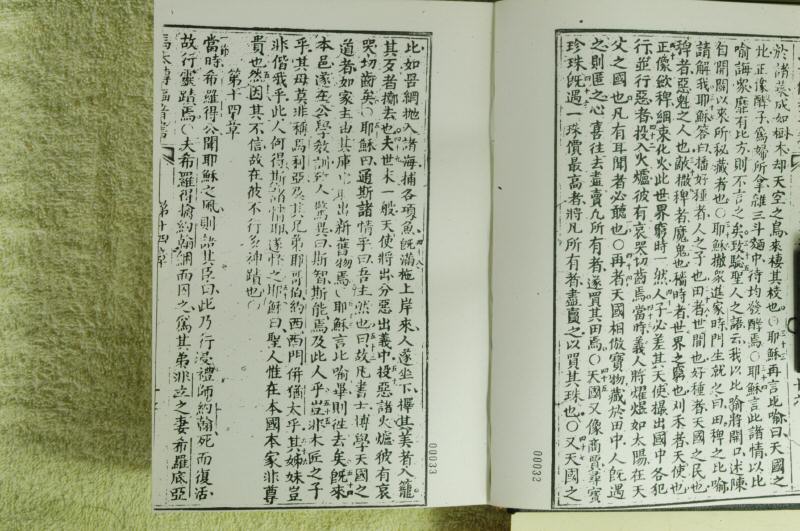 於諸菜成如樹木却天空之鳥來棲其枝也○耶穌再言比喻曰天國之
比正像酵子爲婦所拿雜三斗麵中待均發酵焉○耶穌言此諸情以比
喻誨衆靡有比方則不言之矣致驗聖人之語云我以比喻將開口述陳
自開闢以來所秘藏者也○耶穌撤衆進家時門生就之曰田稗之比喻
請解我耶穌答曰播好種者人之子也田者世間也好種者天國之民也
稗者惡魁之人也敵撒稗者魔鬼也穡時者世界之窮也刈禾者天使也
正像斂稗綑束化火此世界窮時一然人子必差其天使撮出國中各犯
行並行惡者投入火爐彼有哀哭切齒焉當時義人將燿煜如太陽在天
父之國也凡有耳聞者必聽也○再者天國相倣寶物藏於田中人旣遇
之則匿之心喜往去盡賣凡所有者遂買其田焉○天國又像商賈尋寶
珍珠旣遇一珠價最高者將凡所有者盡賣之以買其珠也○又天國之
00032
比如罟網抛入諸海捕各項魚旣滿拖上岸來人遂坐下擇其美者入籠
其歹者擲去也夫世末一般天使將出分惡出義中投惡諸火爐彼有哀
哭切齒矣○耶穌曰通斯諸情乎曰吾主然也曰故凡書士博學天國之
道者如家主由其庫取出新舊物焉○耶穌言比喻畢則往去矣旣來
本邑遂在公學教訓致人驚異曰斯智斯能焉及此人乎豈非木匠之子
乎其母莫非稱馬利亞及其兄弟耶哥伯約西西門併猶大乎其姊妹豈
非偕我乎此人何得斯諸情耶遂怪之耶穌曰聖人惟在本國本家非尊
貴也然因其不信故在彼不行多神蹟也○
第十四章
當時希羅得公聞耶穌之風則語其臣曰此乃行浸禮師約翰死而復活
故行靈蹟焉○夫希羅得擒約翰綑而囚之爲其弟非立之妻希羅底亞
第十四章
00033